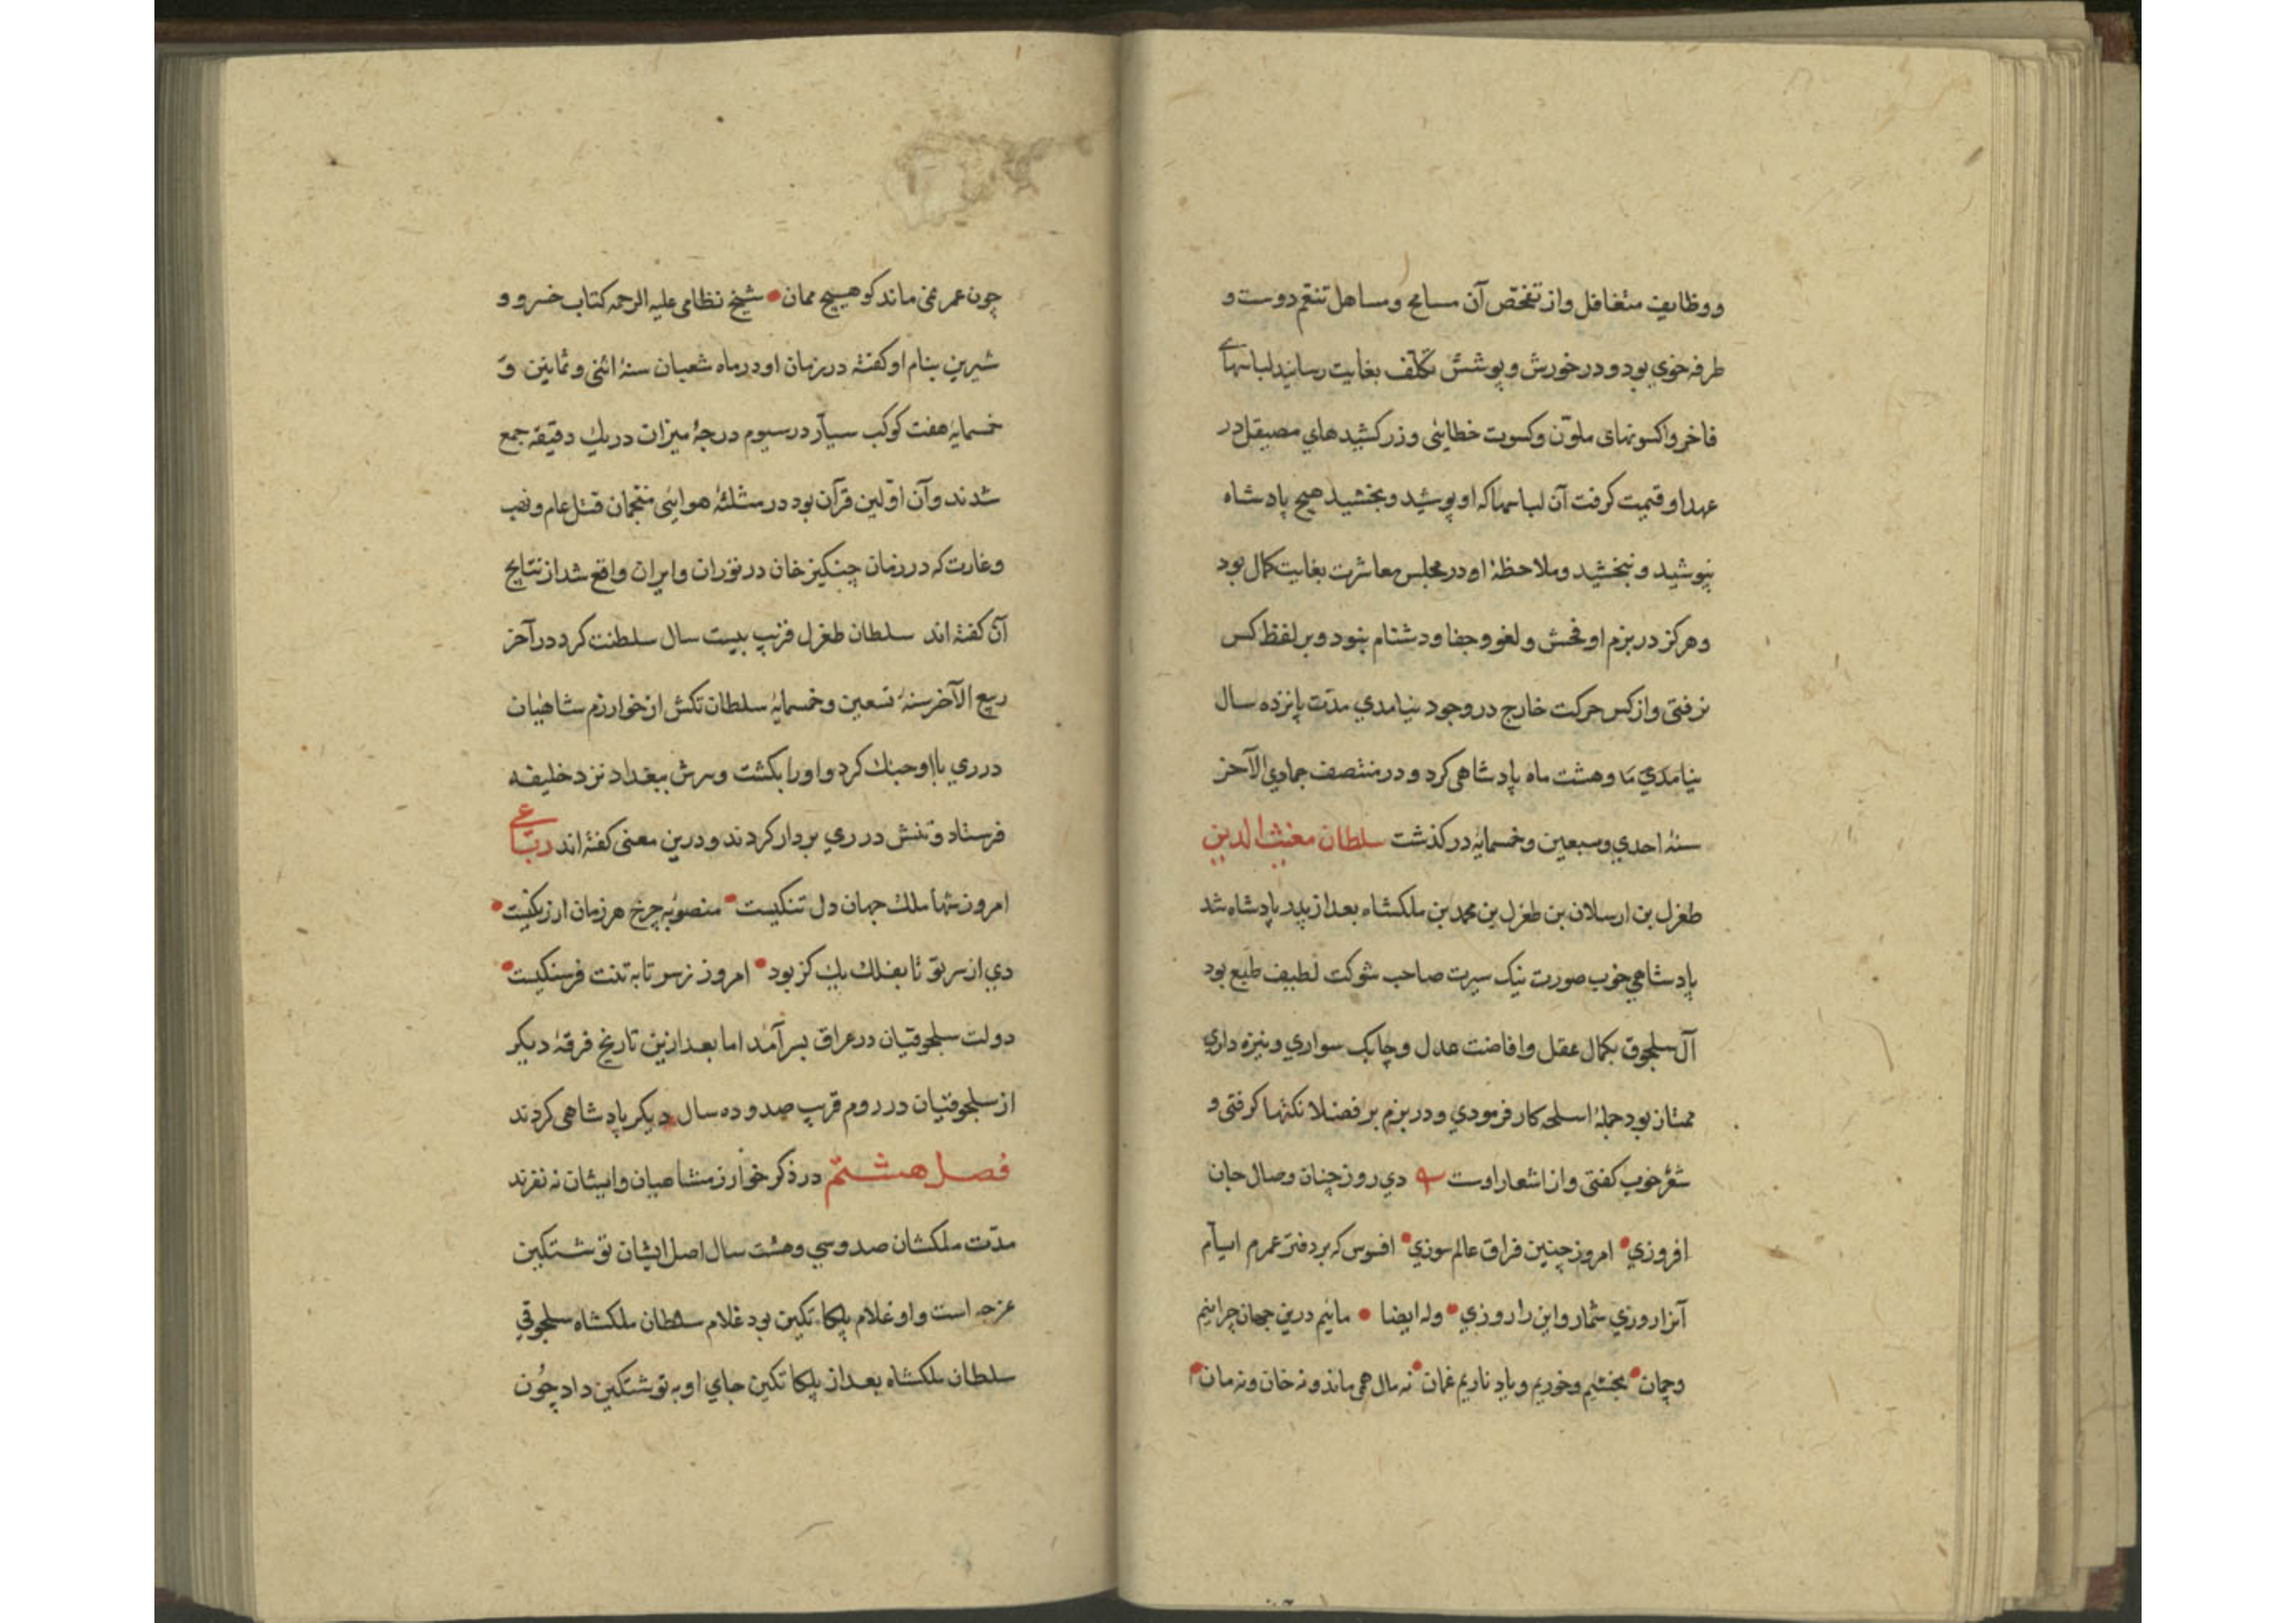 و وظایف متغافل و از تفحّص آن مسامح و مساهل تنعّم دوست و
طرفه خوي بود و در خورش و پوشش تکلّف بغایت رسانید لباسهاے
فاخر و اکسونهای ملوّن و کسوت خطایئی و زر کشیدهاي مصیقل در
عهد او قیمت کرفت آن لباسها که او پوشید و بخشید هیچ پادشاه
نپوشید و نبخشید و ملاحظهٔ او در مجلس معاشرت بغایت کمال بود
و هرکز در بزم او فحش و لغو و جفا و دشنام نبود و بر لفظ کس
نرفتی و از کس حرکت خارج در وجود نیامدي مدّت پانزده سال
نیامدي و هشت ماه پادشاهی کرد و در منتصف جمادي الآخر
سنهٔ احدي و سبعین و خمسمایه درکذشت سلطان مغیث الدین
طغرل بن ارسلان بن طغرل بن محمد بن ملکشاه بعد از پدر پادشاه شد
پادشاهي خوب صورت نیک سیرت صاحب شوکت لطیف طبع بود
آل سلجوق بکمال عقل و افاضت عدل و چابک سواري و نیزه داري
ممتاز بود جملهٔ اسلحه کار فرمودي و در بزم بر فضلا نکتها کرفتی و
شعر خوب کفتی و از اشعار اوست دي روز چنان وصال جان
افروزي • امروز چنین فراق عالم سوزي • افسوس که بر دفتر عمرم ایّام
آنرا روزي شمار و این را روزي • وله ایضا • ماییم درین جهان چرانیم
و چمان • بخشیم و خوریم و یاد ناریم غمان • نه مال همی ماند و نه خان و نه مان •
چون عمر نمی ماند کو هیچ ممان • شیخ نظامی علیه الرحمه کتاب خسرو و
شیرین بنام او کفته در زمان او در ماه شعبان سنهٔ اثنی و ثمانین و
خمسمایه هفت کوکب سیّار در سیوم درجهٔ میزان در یك دقیقه جمع
شدند و آن اوّلین قرآن بود در مثلثهٔ هوایئی منجّمان قتل عام و نهب
و غارت که در زمان چنکیز خان در توران و ایران واقع شد از نتایج
آن کفته اند سلطان طغرل قریب بیست سال سلطنت کرد در آخر
ربیع الآخر سنهٔ تسعین و خمسمایهٔ سلطان تکش از خوارزم شاهیان
در ري با او جنك کرد و او را بکشت و سرش ببغداد نزد خلیفه
فرستاد و تنش در ري بر دار کردند و درین معنی کفته اند رباعے
امروز شها ملك جهان دل تنکیست • منصوبهٔ چرخ هر زمان از رنکیست •
دي از سر تو تا بفلك یك کز بود • امروز ز سر تا به تنت فرسنکیست •
دولت سلجوقیان در عراق بسر آمد اما بعد ازین تاریخ فرقهٔ دیکر
از سلجوقیان در روم قریب صد و ده سال دیکر پادشاهی کردند
فصل هشتم در ذکر خوارزمشاهیان و ایشان نه نفرند
مدّت ملکشان صد و سي و هشت سال اصل ایشان نوشتکین
غرجه است و او غلام بلکا تکین بود غلام سلطان ملکشاه سلجوقي
سلطان ملکشاه بعد از بلکا تکین جاي او به نوشتکین داد چون